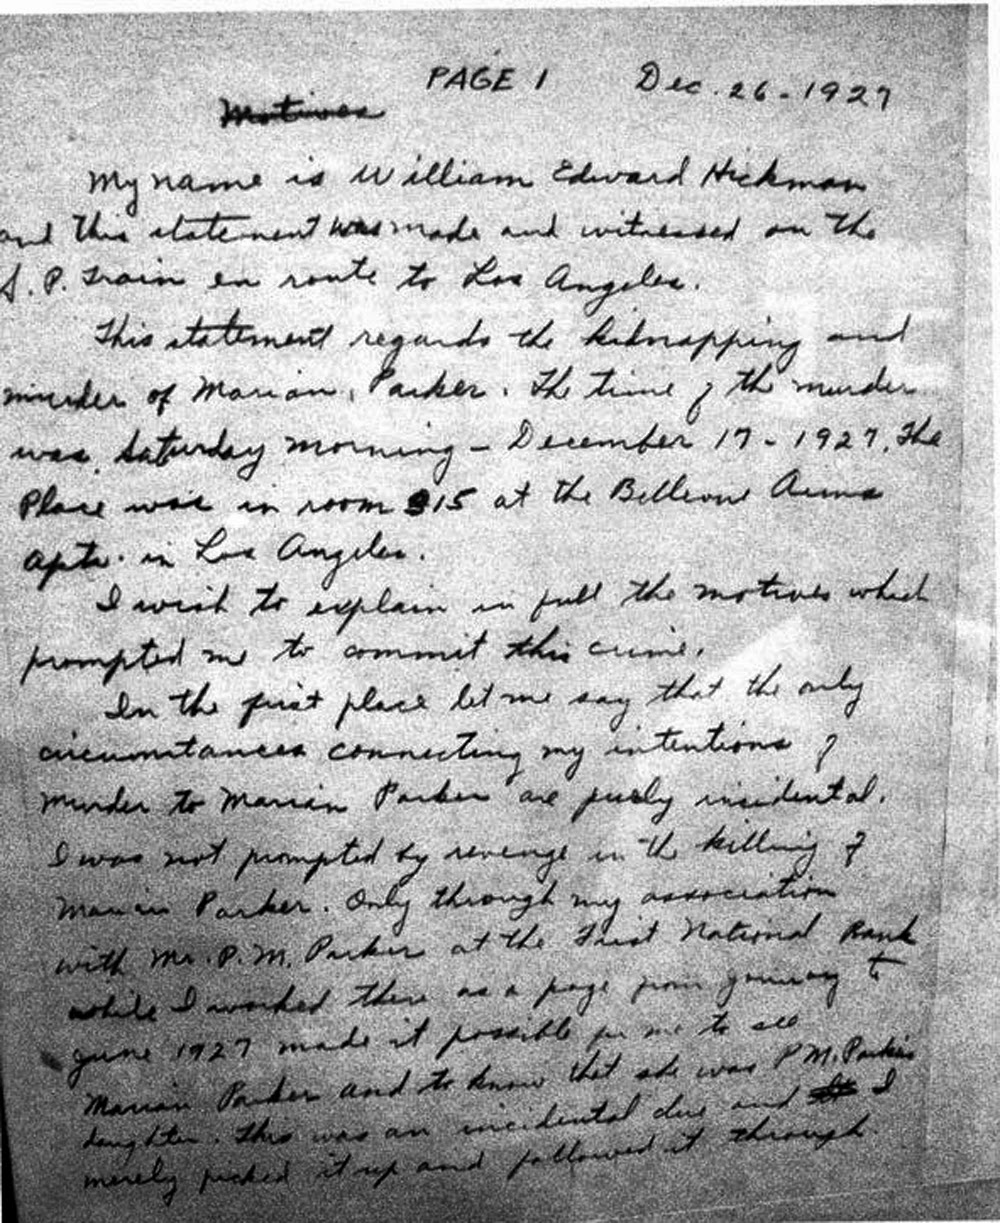 PAGE 1 Dec. 26 - 1927
Motives
My name is William Edward Hickman
and this statement was made and witnessed on the
S. P. train en route to Los Angeles.
This statement regards the kidnapping and
murder of Marian Parker. The time of the murder
was Saturday morning - December 17 - 1927. The
Place was in room 315 at the Bellevue Arms
Apts. in Los Angeles.
I wish to explain in full the motives which
prompted me to commit this crime.
In the first place let me say that the only
circumstances connecting my intentions of
murder to Marian Parker are purely incidental.
I was not prompted by revenge in the killing of
Marian Parker. Only through my association
with Mr. P. M. Parker at the First National Bank
while I worked there as a page from January to
June 1927 made it possible for me to see
Marian Parker and to know that she was P M. Parker's
daughter. This was an incidental clue and I
merely picked it up and followed it through.